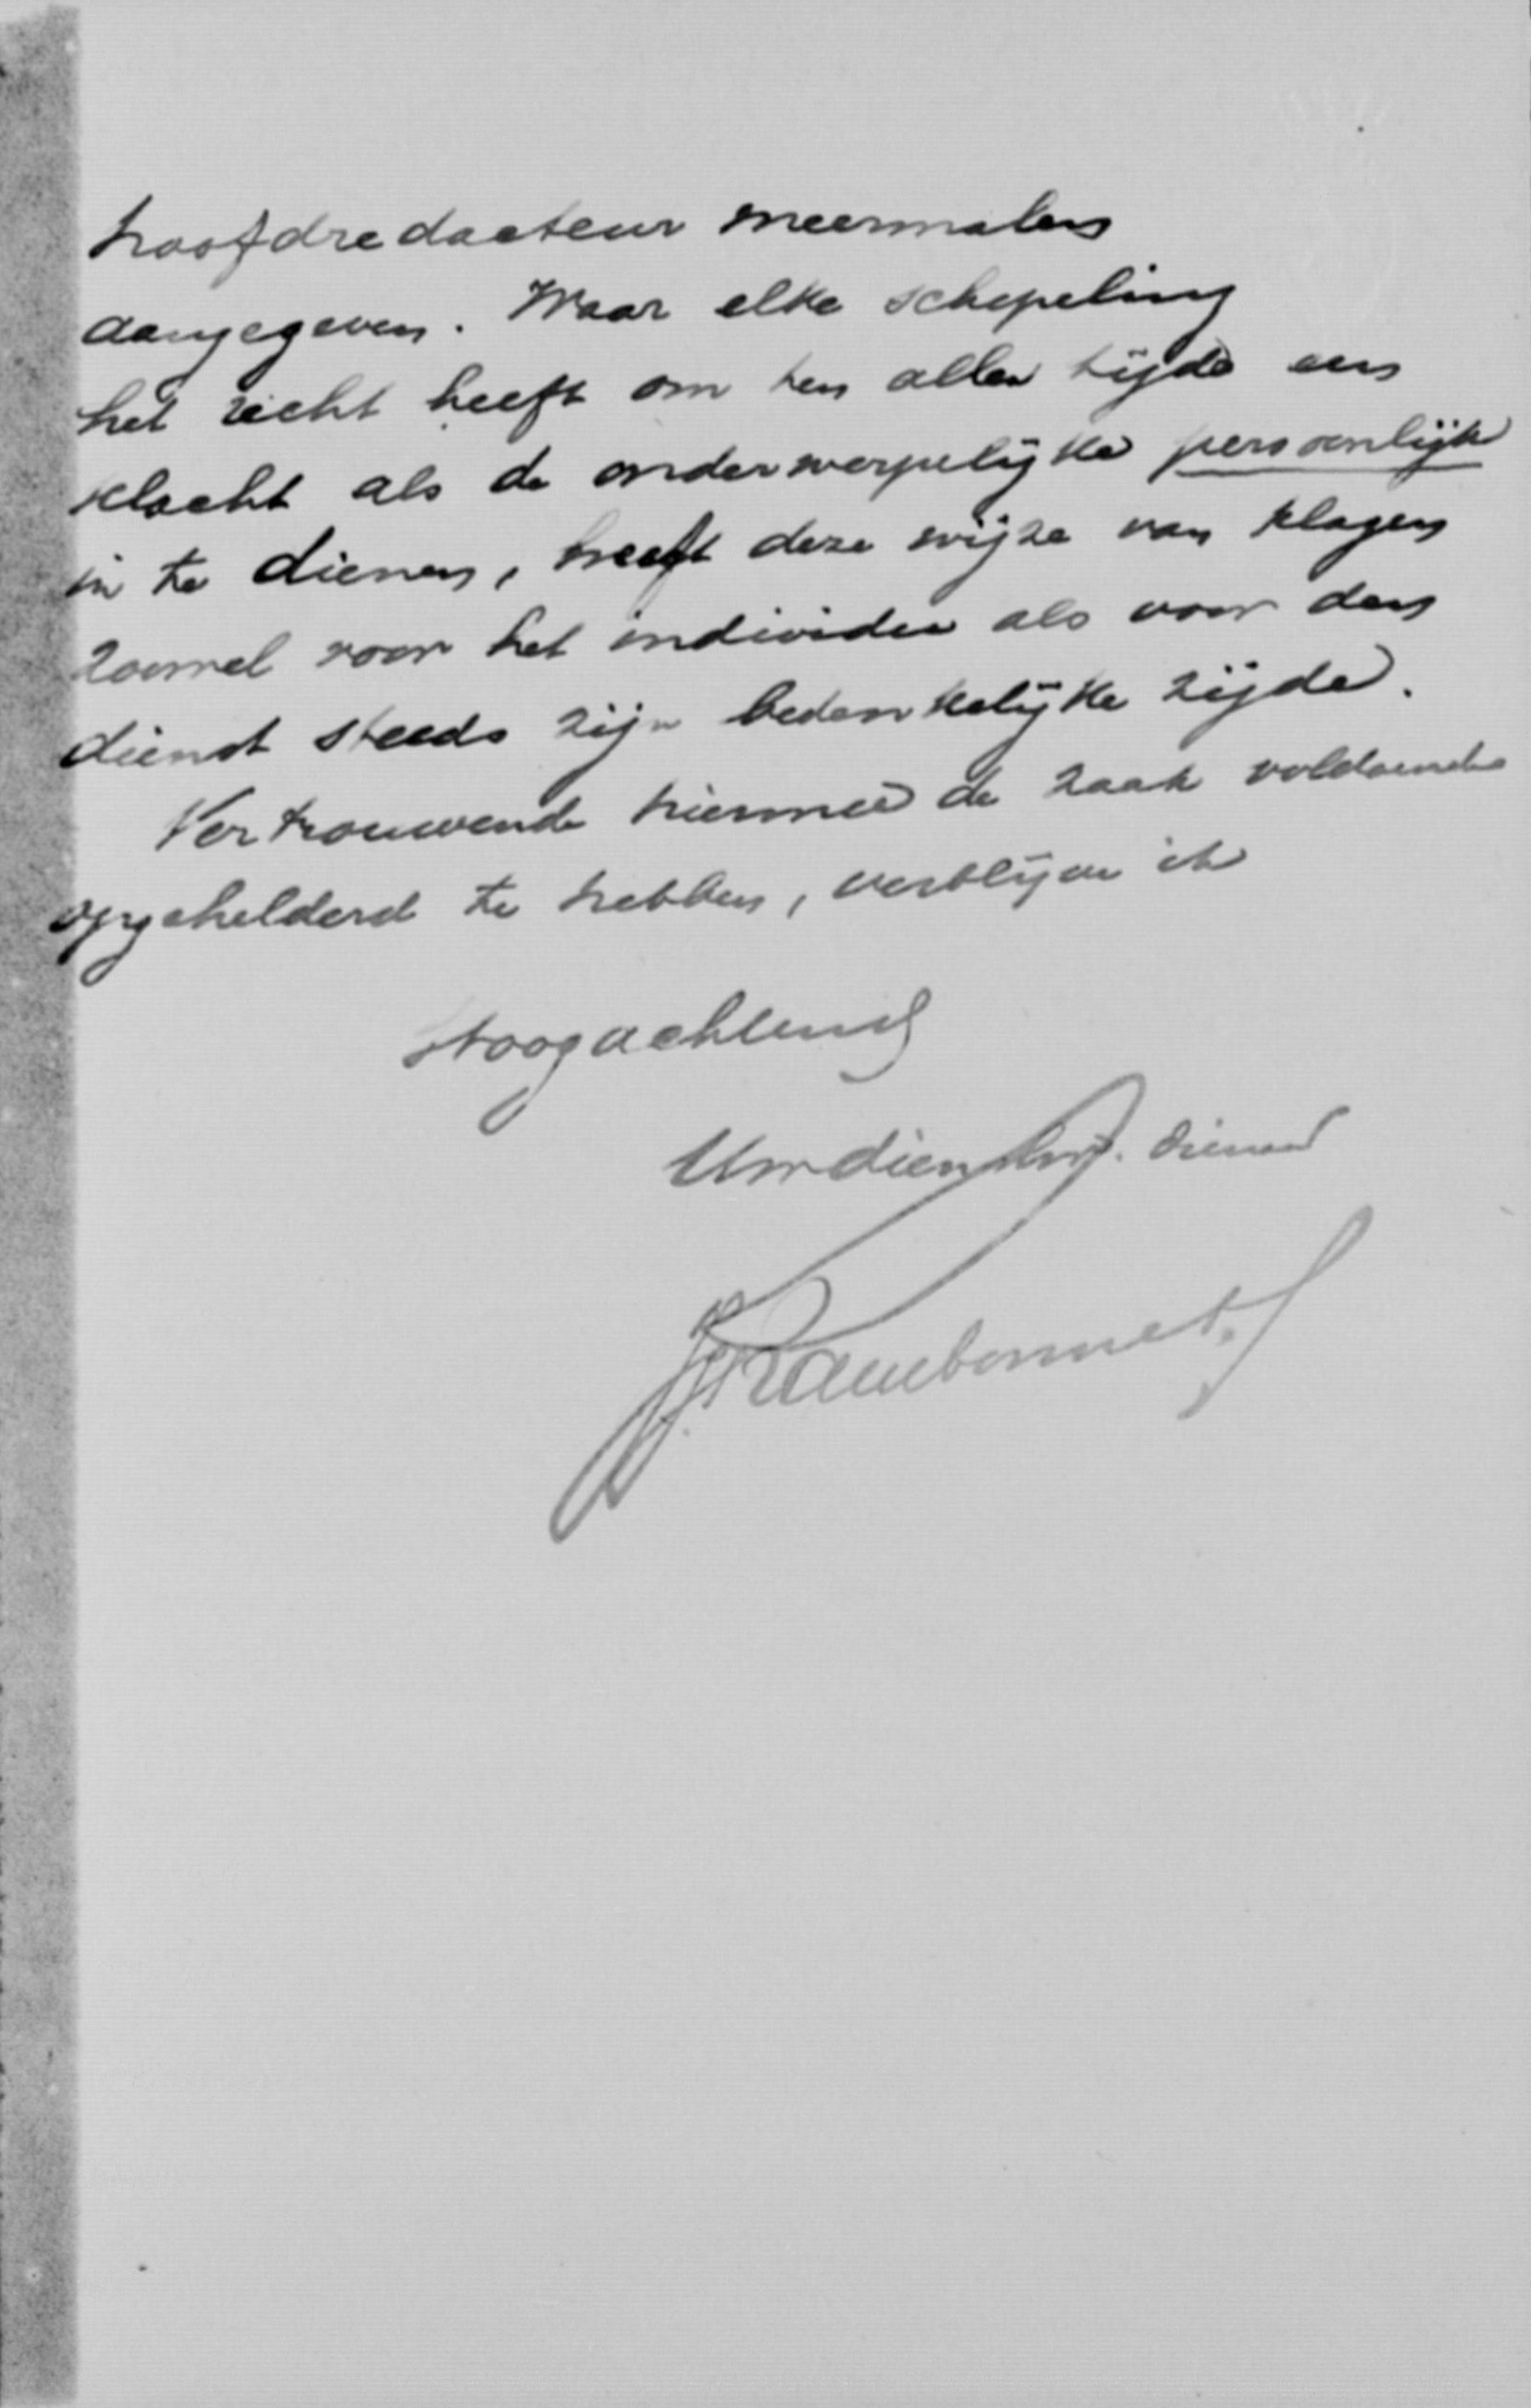 hoofdredacteur meermalen
aangegeven. Waar elke schepeling
het recht heeft om ten allen tijde een
klacht als de onderwerpelijke persoonlijk
in te dienen, heeft deze wijze van klagen
zoowel voor het individu als voor den
dienst steeds zijn bedenkelijke zijde.
Vertrouwende hiermee de zaak voldoende
opgehelderd te hebben, verblijve ik
Hoogachtend
Uw dienstw. dienaar
J.J. Rambonnet.